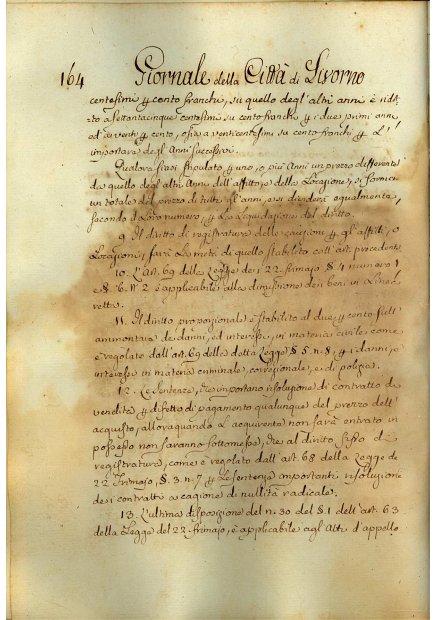 164 Giornale della Città di Livorno
centesimi p cento franchi, su quello degl'altri anni è ridot-
to a settantacinque centesimi su cento franchi p i due primi anni
ed a venti p cento, o sia a venticentesimi su cento franchi p L'
importare degl'Anni successivi.
Qualora siasi stipulato p uno, o più Anni un prezzo differente
da quello degl'altri Anni dell'affitto, o della Locazione, si formerà
un totale del prezzo di tutti gl'anni, e si dividerà egualmente,
secondo il loro numero p La Liquidazione del diritto.
9. Il diritto di registratura delle cauzioni p gl'affitti, o
Locazioni, sarà La metà di quello stabilito coll'art. precedente
10. L'Art. 69 della Legge dei 22 frimajo § 4 numero 1
e § 6. N.° 2 è applicabile alla dimissione dei beni in Linea
retta.
11. Il diritto proporzionale è stabilito al due p cento sull'
ammontare dei danni, ed interessi, in materia civile come
è regolato dall'art. 69 della detta Legge § 5. n. 8, p i danni, e
interessi in materia criminale, correzionale, e di polizia.
12. Le Sentenze, che importano risoluzione di contratto di
vendita p difetto di pagamento qualunque del prezzo dell'
acquisto, allora quando L'acquirente non sarà entrato in
possesso non saranno sottomesse, che al diritto fisso di
registratura, come è regolato dall'art. 68 della Legge de
22 Frimajo, § 3. n. 7 p Le Sentenze importanti risoluzione
dei contratti a cagione di nullità radicale.
13. L'ultima disposizione del n. 30 del § 1 dell'art. 63
della Legge del 22 frimajo, è applicabile agl'Atti d'appello